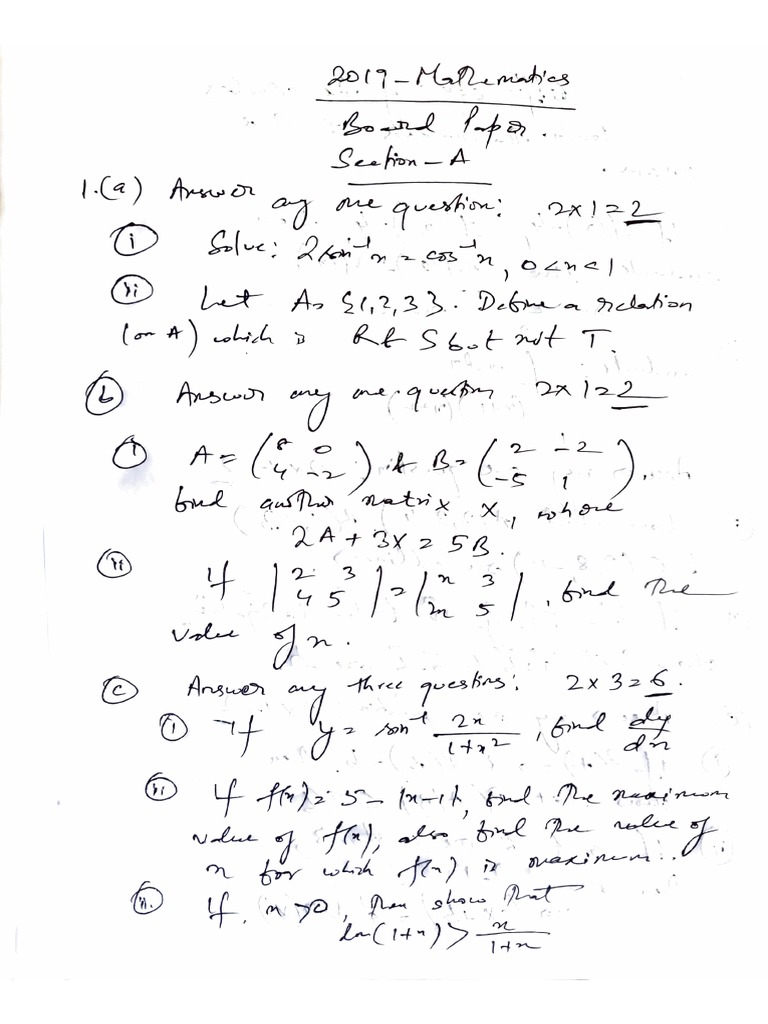 2019 - Mathematics
Board Paper.
Section - A
1.(a) Answer any one question: 2x1=2
(i) Solve: 2 sin⁻¹x = cos⁻¹x, 0<x<1
(ii) Let A = {1,2,3}. Define a relation
(on A) which is R & S but not T.
(b) Answer any one question 2x1=2
(i) A = (8 0 / 4 -2) & B = (2 -2 / -5 1),
find another matrix X, where
2A + 3X = 5B.
(ii) If |2 3 / 4 5| = |x 3 / 2x 5|, find the
value of x.
(c) Answer any three questions: 2x3=6.
(i) If y = sin⁻¹ 2x/1+x², find dy/dx
(ii) If f(x) = 5 - |x-1|, find the maximum
value of f(x), also find the value of
x for which f(x) is maximum.
If x>0, then show that
ln(1+x) > x/1+x